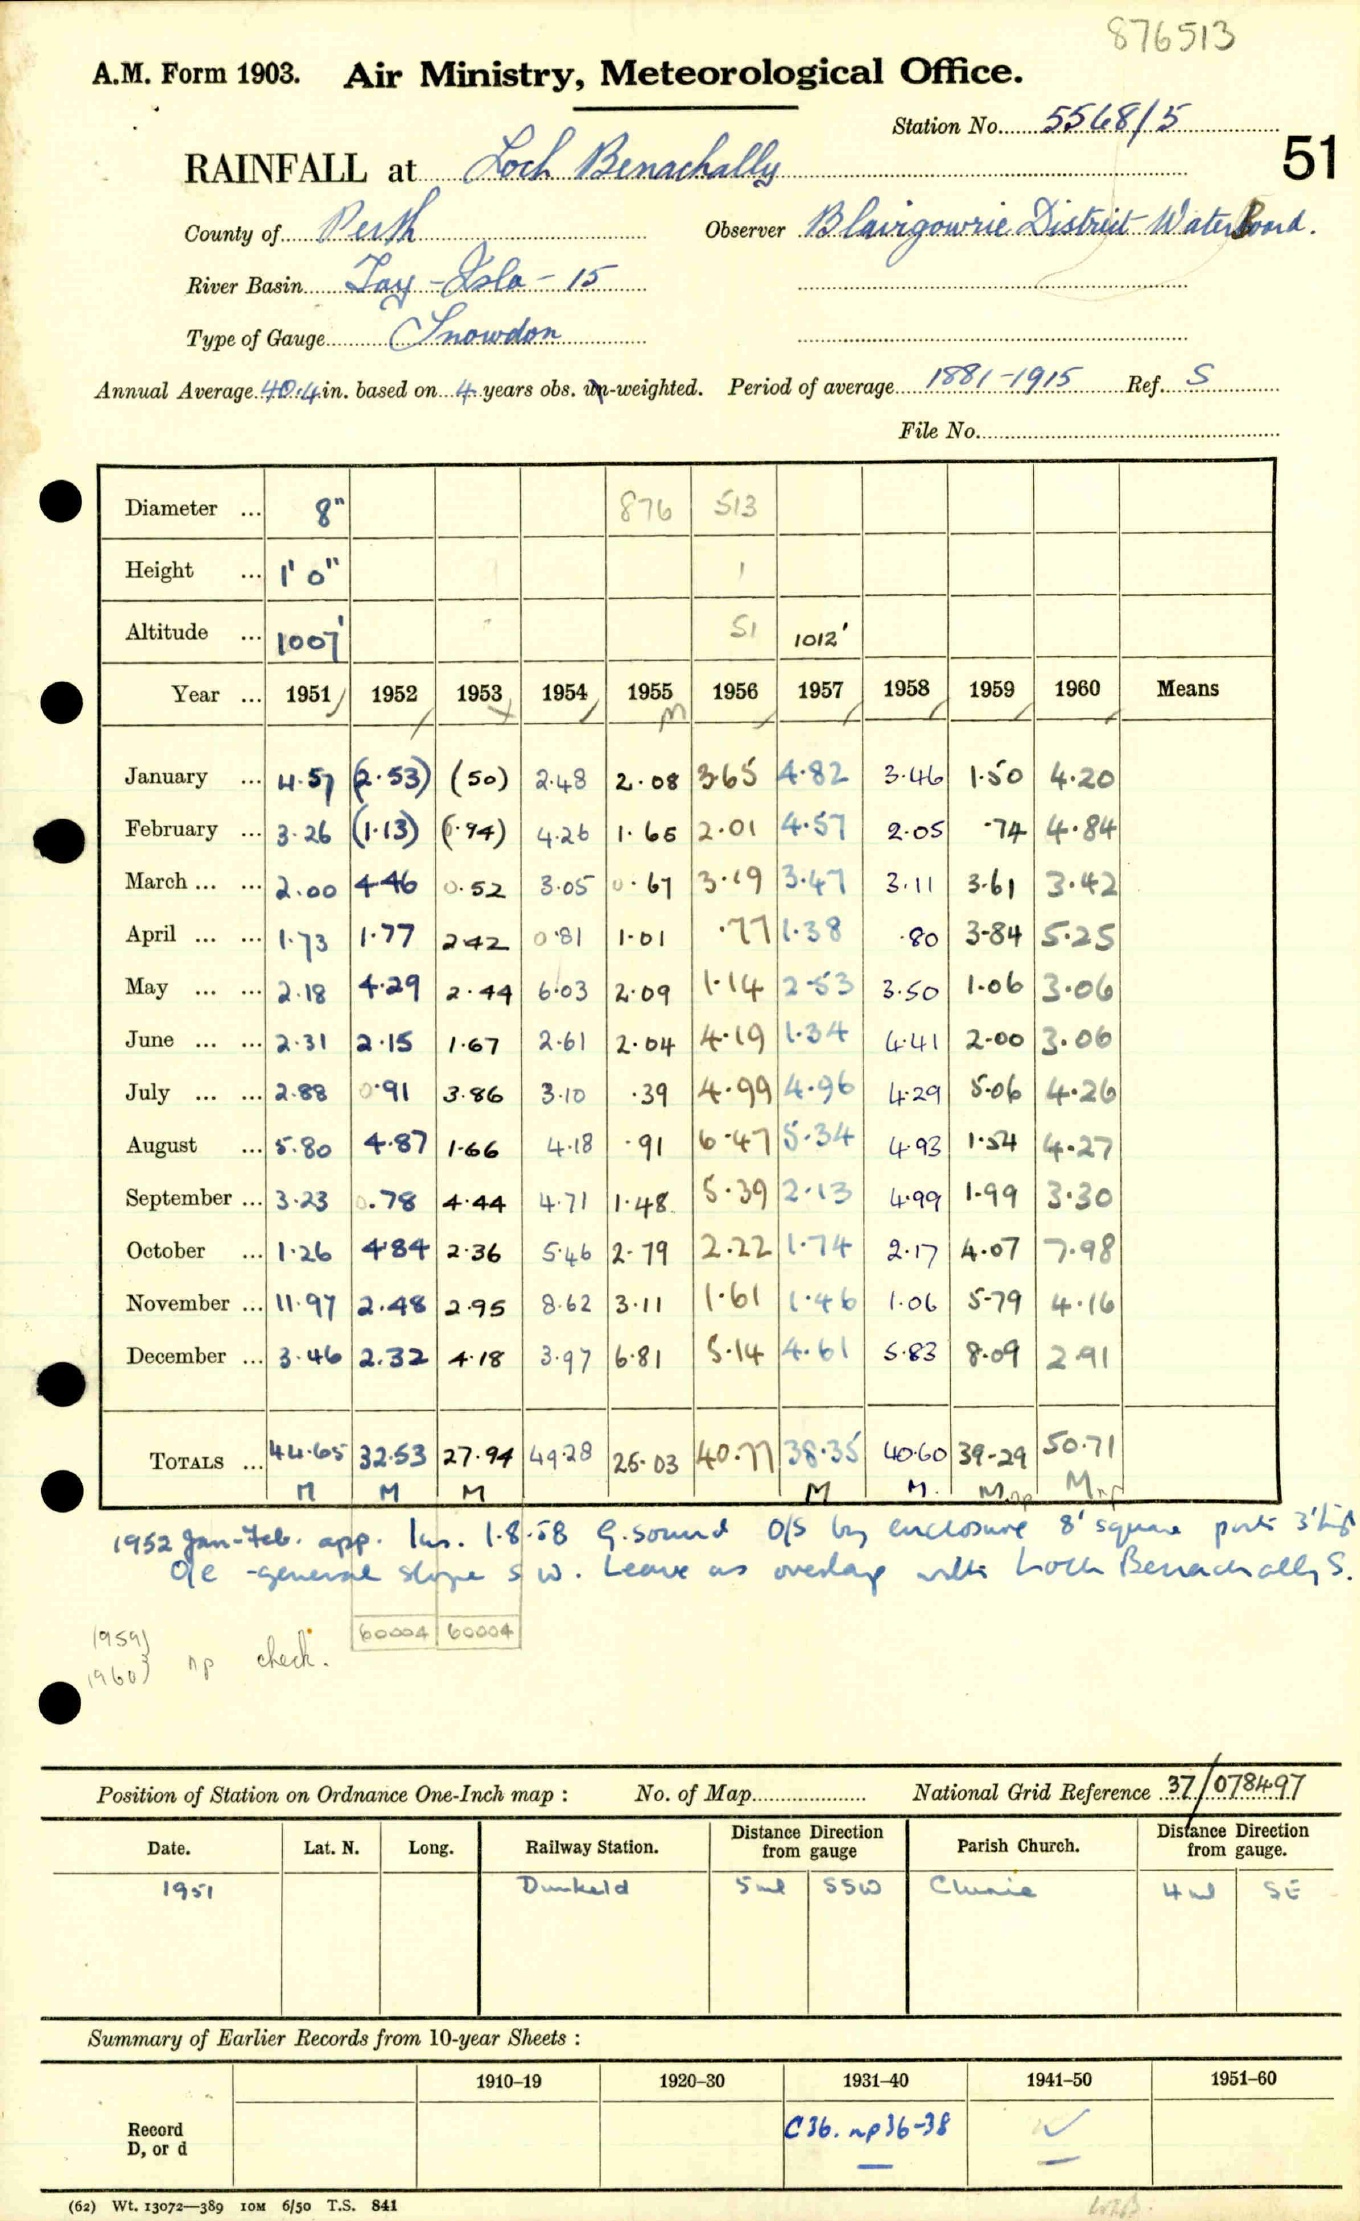 876513
A.M. Form 1903. Air Ministry, Meteorological Office.
Station No. 5568/5
51
RAINFALL at Loch Benachally
County of Perth Observer Blairgowrie District Water Board.
River Basin Tay - Isla - 15
Type of Gauge Snowdon
Annual Average 40.4 in. based on 4 years obs. un-weighted. Period of average 1881-1915 Ref. S
File No.
Diameter ... 8" 876 513
Height ... 1' 0" 1
Altitude ... 1007' 51 1012'
Year ... 1951 1952 1953 1954 1955 1956 1957 1958 1959 1960 Means
M
January ... 4.57 (2.53) (50) 2.48 2.08 3.65 4.82 3.46 1.50 4.20
February ... 3.26 (1.13) (0.94) 4.26 1.65 2.01 4.57 2.05 .74 4.84
March ... ... 2.00 4.46 0.52 3.05 0.67 3.19 3.47 3.11 3.61 3.42
April ... ... 1.73 1.77 2.42 0.81 1.01 .77 1.38 .80 3.84 5.25
May ... ... 2.18 4.29 2.44 6.03 2.09 1.14 2.53 3.50 1.06 3.06
June ... ... 2.31 2.15 1.67 2.61 2.04 4.19 1.34 4.41 2.00 3.06
July ... ... 2.88 0.91 3.86 3.10 .39 4.99 4.96 4.29 5.06 4.26
August ... 5.80 4.87 1.66 4.18 .91 6.47 5.34 4.93 1.54 4.27
September ... 3.23 0.78 4.44 4.71 1.48 5.39 2.13 4.99 1.99 3.30
October ... 1.26 4.84 2.36 5.46 2.79 2.22 1.74 2.17 4.07 7.98
November ... 11.97 2.48 2.95 8.62 3.11 1.61 1.46 1.06 5.79 4.16
December ... 3.46 2.32 4.18 3.97 6.81 5.14 4.61 5.83 8.09 2.91
TOTALS ... 44.65 32.53 27.94 49.28 25.03 40.77 38.35 40.60 39.29 50.71
M M M M M. M np M np
1952 Jan-Feb. app. Ins. 1.8.58 G. sound O/S by enclosure 8' square posts 3' high
O/e - general slope SW. Leave as overlap with Loch Benachally S.
60004 60004
1959}
1960} np check.
Position of Station on Ordnance One-Inch map : No. of Map National Grid Reference 37/078497
Date. Lat. N. Long. Railway Station. Distance Direction from gauge Parish Church. Distance Direction from gauge.
1951 Dunkeld 5 ml SSW Clunie 4 ml SE
Summary of Earlier Records from 10-year Sheets :
1910–19 1920–30 1931–40 1941–50 1951–60
Record
D, or d
C36. np 36-38 ✓
(62) Wt. 13072—389 10M 6/50 T.S. 841